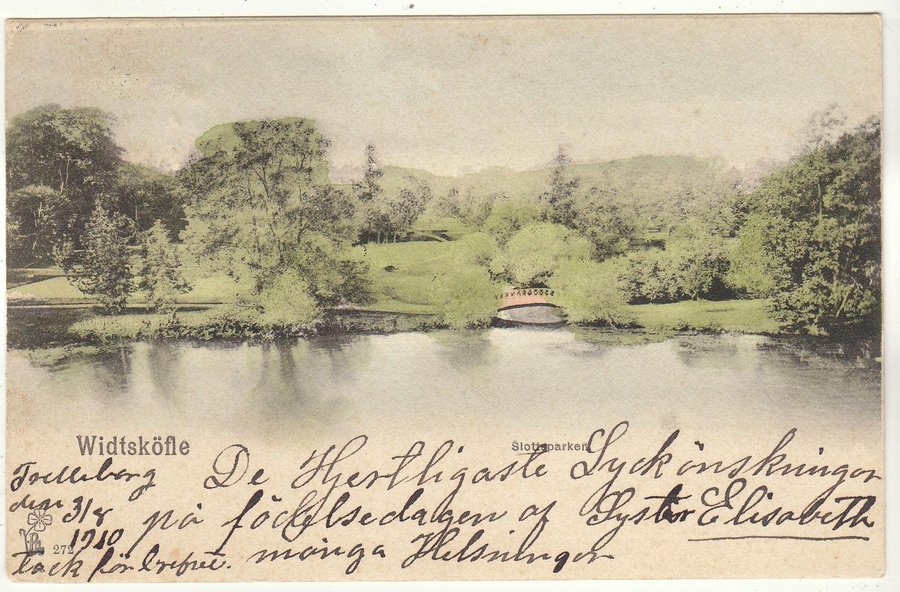 Widtsköfle
Slottsparken
Trelleborg
den 3/8
1910
tack för brefvet.
De Hjertligaste Lyckönskningar
på födelsedagen af Syster Elisabeth
många Helsningar
272